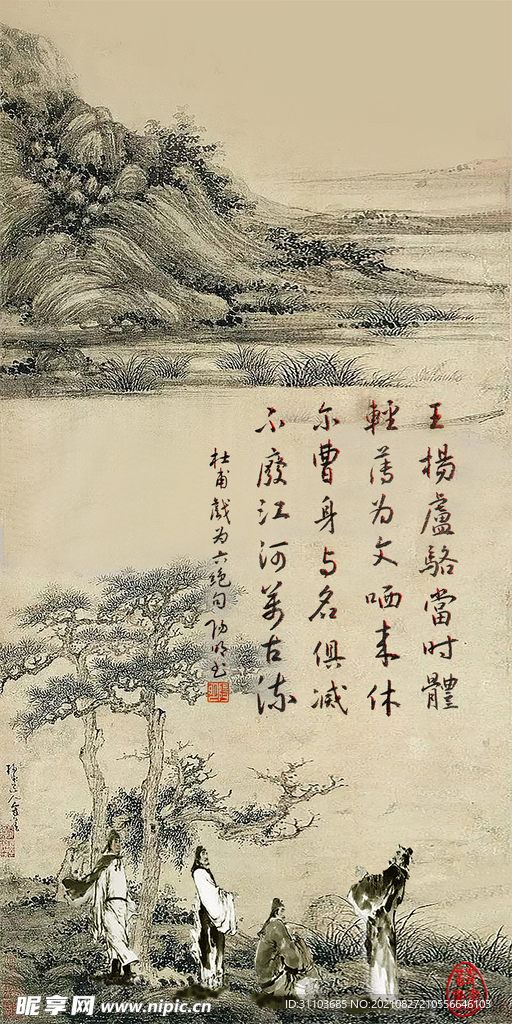 王楊盧駱當时體
輕薄为文哂未休
尔曹身与名俱滅
不廢江河萬古流
杜甫戲为六絕句
昵享网 www.nipic.cn
ID:31103685 NO:20210827210556646103